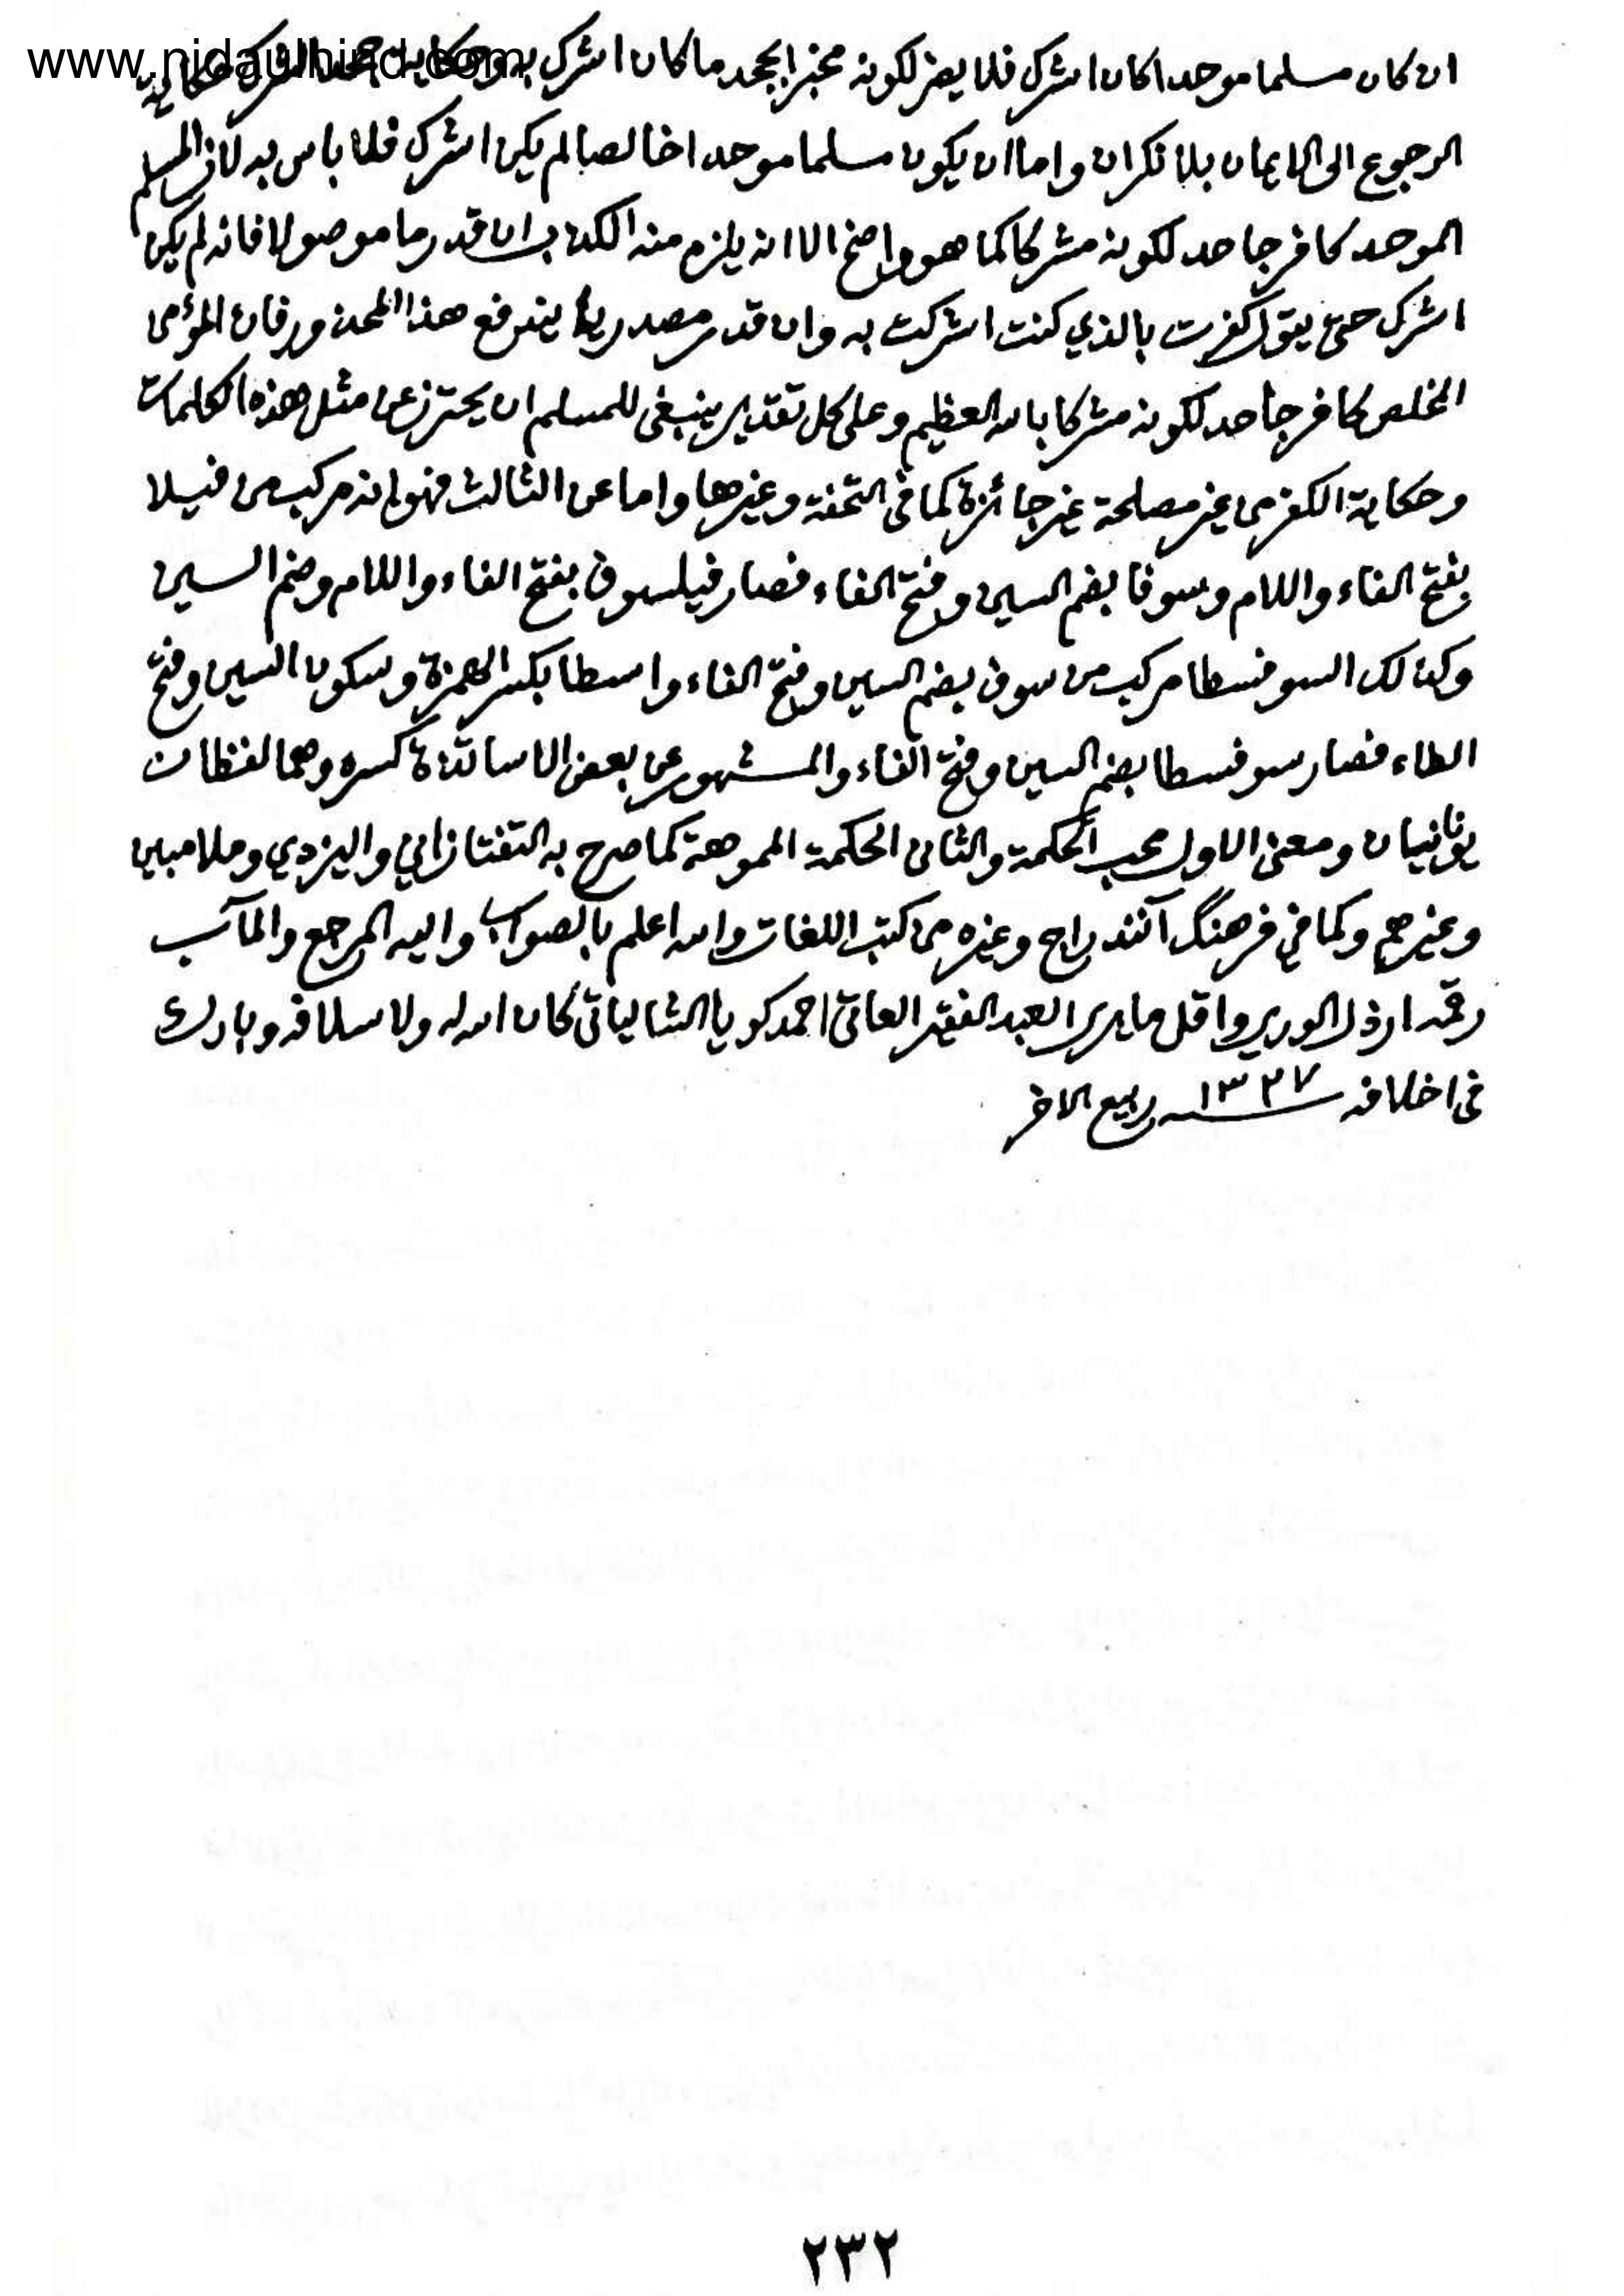 www.nidaulhind.com
ان كان مسلما موحدا كان اشرك فلا يضر لكونه مخبرا بجحد ما كان اشرك به وحكاية
الرجوع الى الايمان بلا نكران واما ان يكون مسلما موحدا خالصا لم يكن اشرك فلا باس به لان المسلم
الموحد كافر جاحد لكونه مشركا كما هو واضح الا انه يلزم منه الكذب ان قدر ما موصولا فانه لم يكن
اشرك حتى يقول كفرت بالذي كنت اشركت به وان قدر مصدرية يندفع هذا المحذور فان المؤمن
المخلص كافر جاحد لكونه مشركا بالله العظيم وعلى كل تقدير ينبغى للمسلم ان يحترز عن مثل هذه الكلمات
وحكاية الكفر من غير مصلحة غير جائزة كما فى التحفة وغيرها واما عن الثالث فهو انه مركب من فيلا
بفتح الفاء واللام وسوفا بضم السين وفتح الفاء فصار فيلسوف بفتح الفاء واللام وضم السين
وكذلك السوفسطا مركب من سوف بضم السين وفتح الفاء واسطا بكسر الهمزة وسكون السين وفتح
الطاء فصار سوفسطا بضم السين وفتح الفاء والمشهور عن بعض الاساتذة كسره وهما لفظان
يونانيان ومعنى الاول محب الحكمة والثانى الحكمة المموهة كما صرح به التفتازاني واليزدي وملا مبين
وغيرهم وكما في فرهنگ آنند راج وغيره من كتب اللغات والله اعلم بالصواب واليه المرجع والمآب
رقمه ارذل الورى واقل ما يرى العبد الفقير العاتى احمد كويا الشالياتى كان الله له ولاسلافه وبارك
فى اخلافه ١٣٣٧ ربيع الاخر
٢٣٢